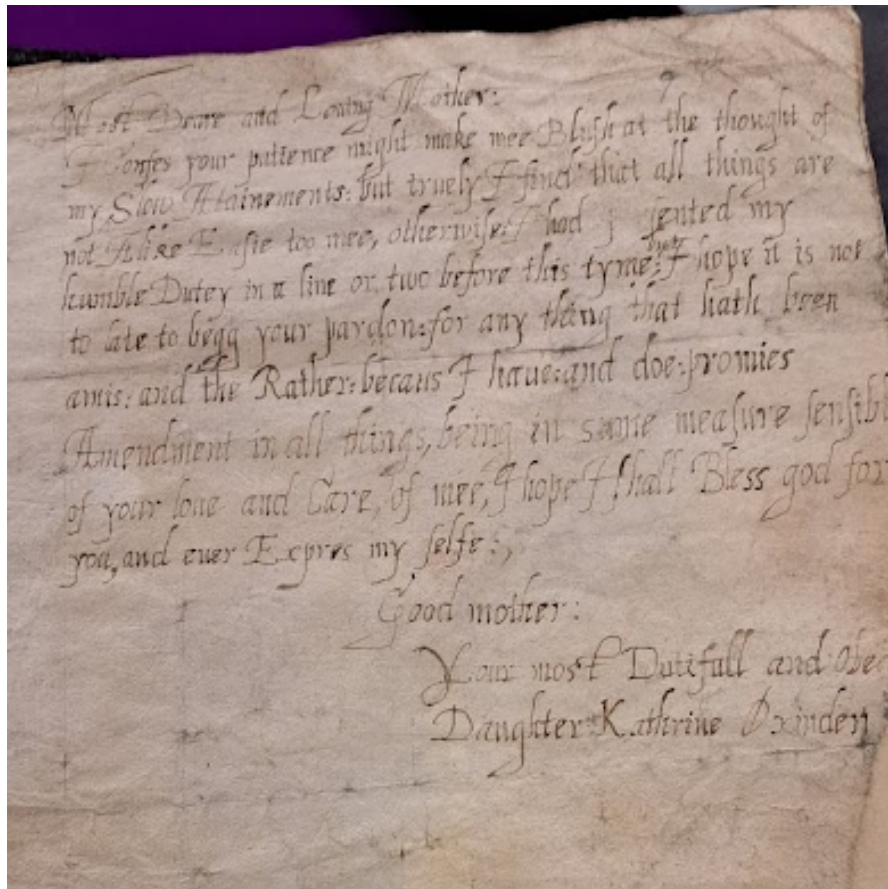 Most Deare and Loving Mother:
I Confes your patience might make mee Blush at the thought of
my Slow Atainements: but truely I find that all things are
not Alike Easie too mee, otherwise I had sented my
humble Dutey in a line or two before this tyme: but I hope it is not
to late to begg your pardon: for any thing that hath been
amis: and the Rather: becaus I haue: and doe: promies
Amendment in all things, being in some measure sensibl
of your loue and Care, of mee, I hope I shall Bless god for
you, and euer Expres my selfe:,
Good mother:
Your most Dutifull and Obe
Daughter Kathrine Oxinden